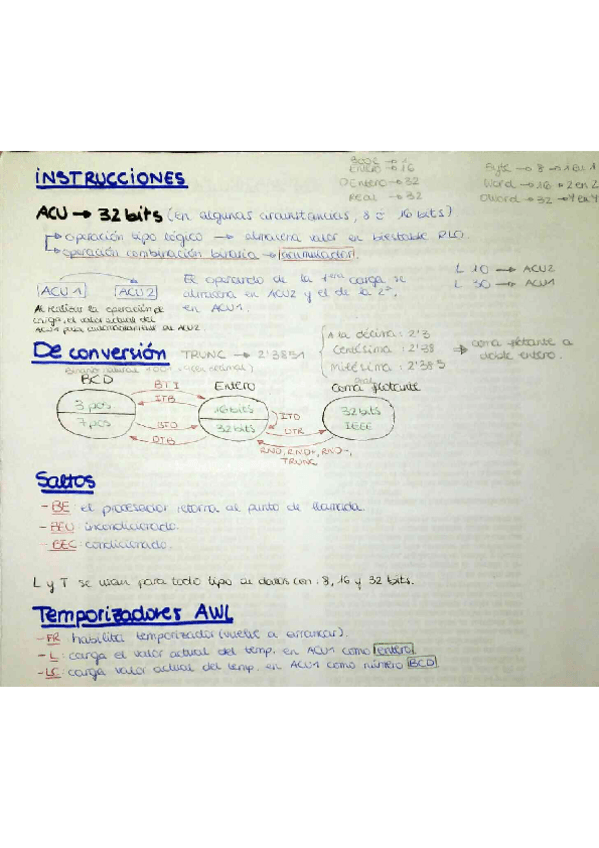 BOOL → 1
ENTERO → 16
DEntero → 32
REAL → 32
Byte → 8 → 1 en 1
Word → 16 → 2 en 2
DWord → 32 → 4 en 4
INSTRUCCIONES
ACU → 32 bits (en algunas circunstancias, 8 o 16 bits)
operación tipo lógico → almacena valor en biestable RLO.
operación combinación binaria → acumulador.
ACU1 ACU2
El operando de la 1era carga se
almacena en ACU2 y el de la 2ª,
en ACU1.
L 10 → ACU2
L 30 → ACU1
Al realizar la operación de
carga, el valor actual del
ACU1 pasa automáticamente al ACU2.
De conversión
TRUNC → 2'3851
A la décima: 2'3
Centésima: 2'38
Milésima: 2'385
⇒ coma flotante a
doble entero.
BCD
Entero
Real
Coma flotante
3 pos
7 pos
BTI
ITB
BTD
DTB
16 bits
32 bits
ITD
DTR
RND, RND+, RND-,
TRUNC
32 bits
IEEE
Saltos
- BE: el procesador retorna al punto de llamada.
- BEU: incondicionado.
- BEC: condicionado.
L y T se usan para todo tipo de datos con: 8, 16 y 32 bits.
Temporizadores AWL
- FR: habilita temporizador (vuelve a arrancar).
- L: carga el valor actual del temp. en ACU1 como entero.
- LC: carga valor actual del temp. en ACU1 como número BCD